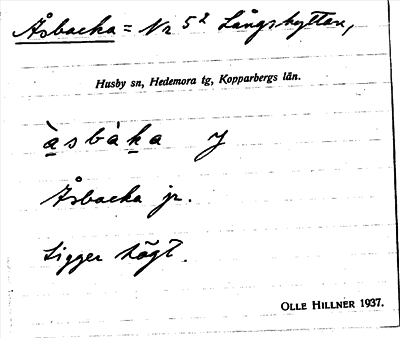 Åsbacka = Nr 5² Långshyttan,
Husby sn, Hedemora tg, Kopparbergs län.
à̱sbàḵa
Åsbacka jr.
Ligger högt.
OLLE HILLNER 1937.